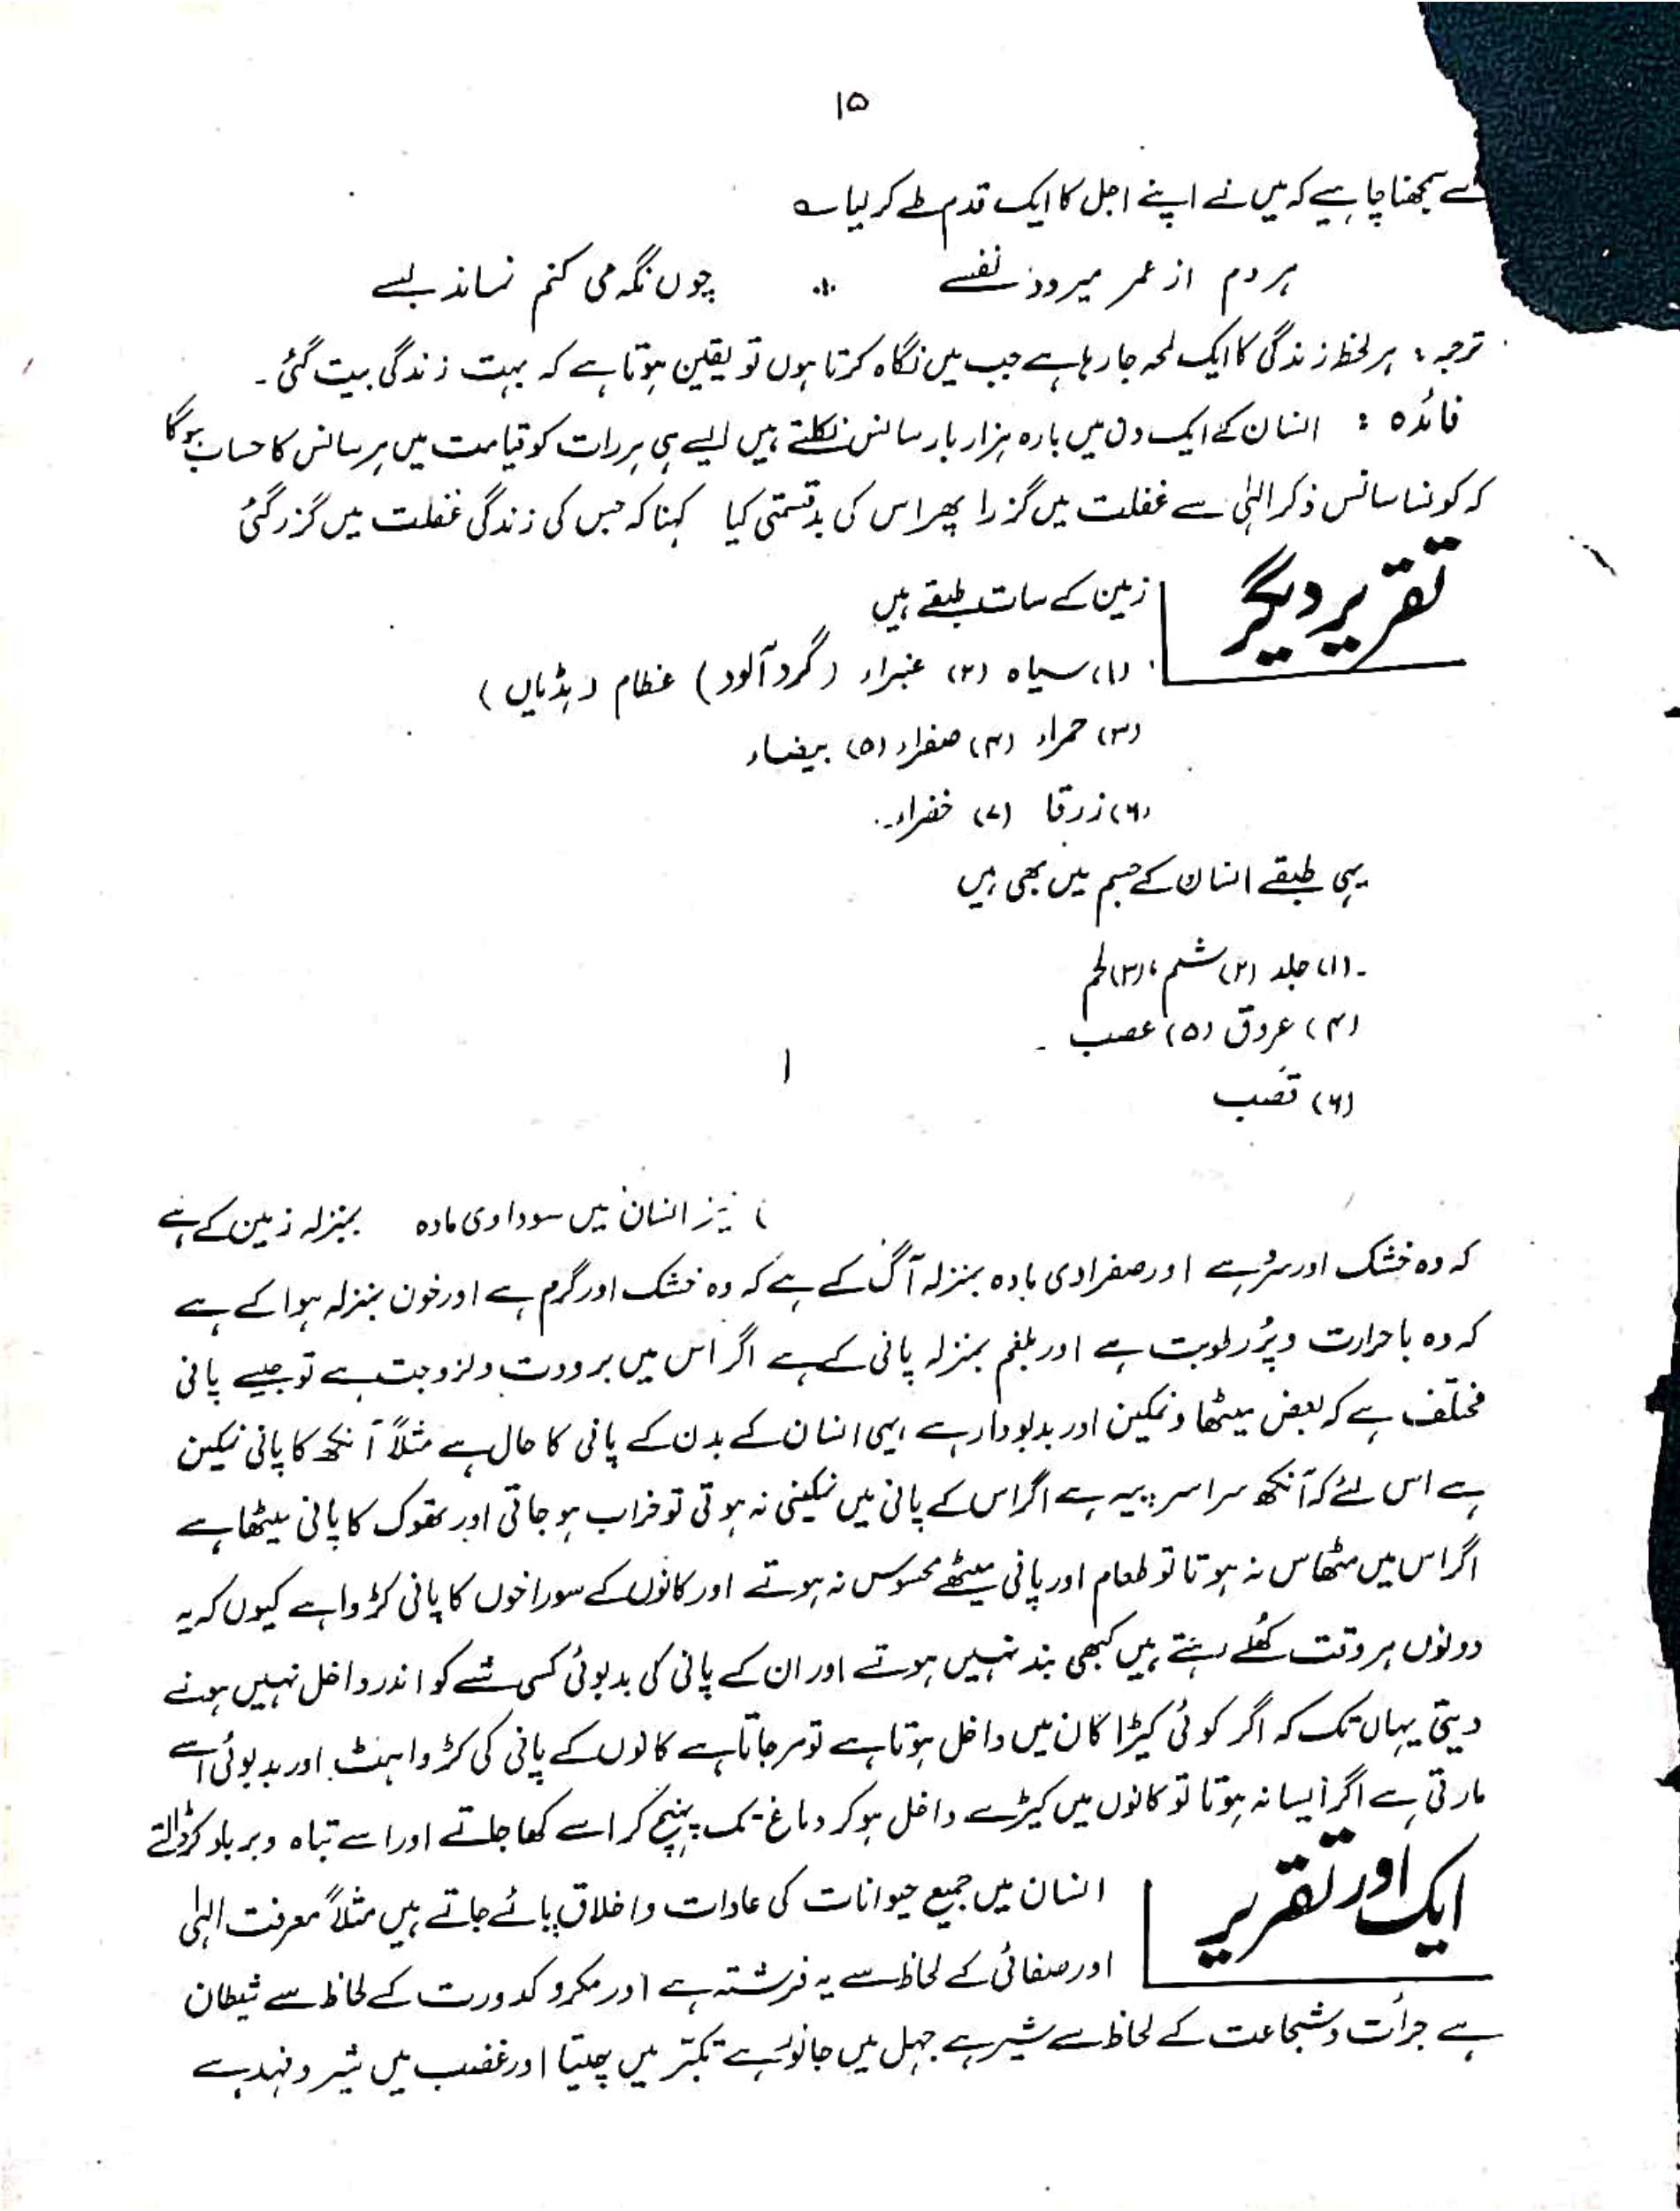 ۱۵
سے سمجھنا چاہیے کہ میں نے اپنے اجل کا ایک قدم طے کر لیا ے
ہر دم از عمر میرود نفسے ∴ چوں نگہ می کنم نماند بسے
ترجمہ : ہر لحظہ زندگی کا ایک لمحہ جا رہا ہے جب میں نگاہ کرتا ہوں تو یقین ہوتا ہے کہ بہت زندگی بیت گئی ۔
فائدہ : انسان کے ایک دن میں بارہ ہزار بار سانس نکلتے ہیں ایسے ہی ہر رات کو قیامت میں ہر سانس کا حساب ہوگا
کہ کونسا سانس ذکر الہٰی سے غفلت میں گزرا پھر اس کی بدقسمتی کیا کہنا کہ جس کی زندگی غفلت میں گزر گئی
تقریر دیگر
زمین کے سات طبقے ہیں
(۱) سیاہ (۲) غبراء (گرد آلود) عظام (ہڈیاں)
(۳) حمراء (۴) صفراء (۵) بیضاء
(۶) زرقا (۷) خضراء۔
یہی طبقے انسان کے جسم میں بھی ہیں
۔(۱) جلد (۲) شحم ، (۳) لحم
(۴) عروق (۵) عصب ۔
(۶) قصب
) نیز انسان میں سوداوی مادہ بمنزلہ زمین کے ہے
کہ وہ خشک اور سرد ہے اور صفراوی مادہ بمنزلہ آگ کے ہے کہ وہ خشک اور گرم ہے اور خون بمنزلہ ہوا کے ہے
کہ وہ با حرارت و پُر رطوبت ہے اور بلغم بمنزلہ پانی کے ہے اگر اس میں برودت و لزوجت ہے تو جیسے پانی
مختلف ہے کہ بعض میٹھا و نمکین اور بدبودار ہے ایسی انسان کے بدن کے پانی کا حال ہے مثلاً آنکھ کا پانی نمکین
ہے اس لئے کہ آنکھ سراسر پیہ ہے اگر اس کے پانی میں نمکینی نہ ہوتی تو خراب ہو جاتی اور تھوک کا پانی میٹھا ہے
اگر اس میں مٹھاس نہ ہوتا تو طعام اور پانی میٹھے محسوس نہ ہوتے اور کانوں کے سوراخوں کا پانی کڑوا ہے کیوں کہ یہ
دونوں ہر وقت کھُلے رہتے ہیں کبھی بند نہیں ہوتے اور ان کے پانی کی بدبوئی کسی شے کو اندر داخل نہیں ہونے
دیتی یہاں تک کہ اگر کوئی کیڑا کان میں داخل ہوتا ہے تو مر جاتا ہے کانوں کے پانی کی کڑواہٹ اور بدبوئی اسے
مارتی ہے اگر ایسا نہ ہوتا تو کانوں میں کیڑے داخل ہو کر دماغ تک پہنچ کر اسے کھا جاتے اور اسے تباہ و برباد کر ڈالتے
ایک اور تقریر
انسان میں جمیع حیوانات کی عادات و اخلاق پائے جاتے ہیں مثلاً معرفت الہٰی
اور صفائی کے لحاظ سے یہ فرشتہ ہے اور مکر و کدورت کے لحاظ سے شیطان
ہے جرأت و شجاعت کے لحاظ سے شیر ہے جہل میں جانور ہے تکبّر میں چیتا اور غضب میں شیر و فہد ہے